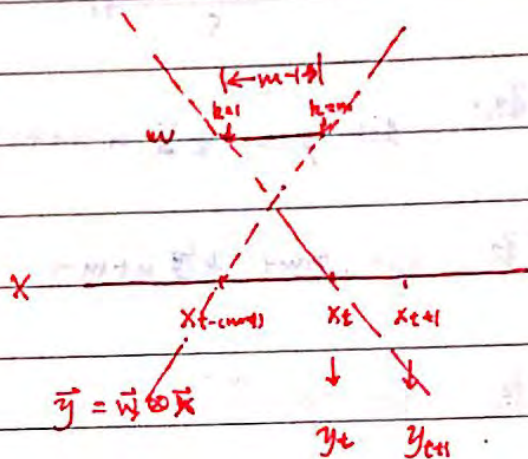 |← m-1 →|
k=1 k=m
w
X
x_{t-(m-1)} x_t x_{t+1}
↓ ↓
\vec{y} = \vec{w} ⊗ \vec{x}
y_t y_{t+1}